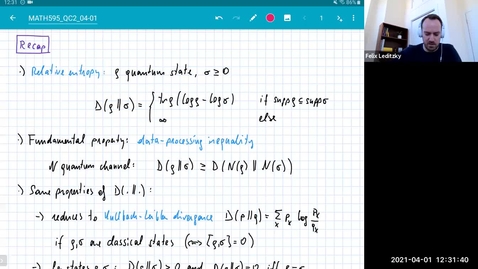 12:31
89%
MATH595_QC2_04-01
Recap
·) Relative entropy: ρ quantum state, σ ≥ 0
D(ρ‖σ) = { tr ρ(log ρ - log σ) if supp ρ ⊆ supp σ
∞ else
·) Fundamental property: data-processing inequality
N quantum channel: D(ρ‖σ) ≥ D(N(ρ)‖N(σ))
·) Some properties of D(.‖.):
→ reduces to Kullback-Leibler divergence D(p‖q) = Σx px log px/qx
if ρ,σ are classical states (⟺ [ρ,σ]=0)
→ states ρ,σ: D(ρ‖σ) ≥ 0 and D(ρ‖σ)=0 iff ρ=σ
Felix Leditzky
2021-04-01 12:31:40